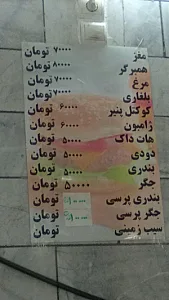 مغز ۷۰۰۰۰ تومان
همبرگر ۸۰۰۰۰ تومان
مرغ ۷۰۰۰۰ تومان
بلغاری ۷۰۰۰۰ تومان
کوکتل پنیر ۶۰۰۰۰ تومان
ژامبون ۶۰۰۰۰ تومان
هات داگ ۵۰۰۰۰ تومان
دودی ۵۰۰۰۰ تومان
بندری ۵۰۰۰۰ تومان
جگر ۵۰۰۰۰ تومان
بندری پرسی تومان
جگر پرسی تومان
سیب زمینی تومان